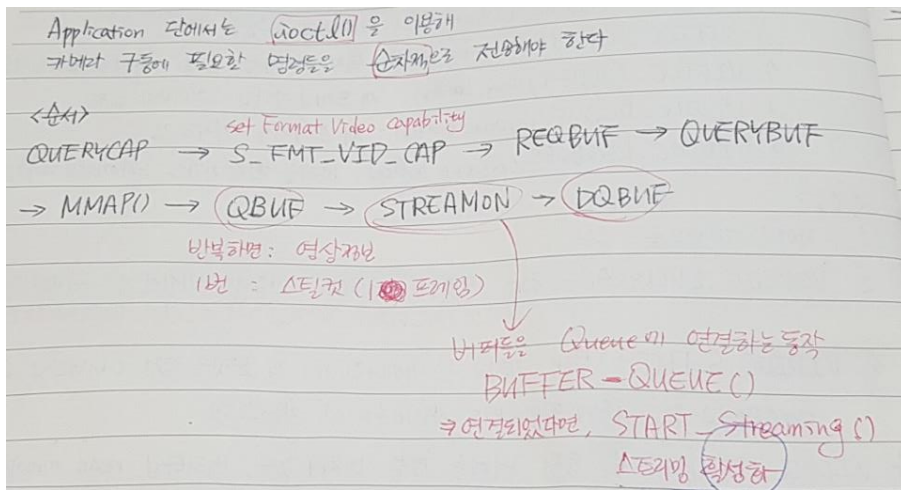 Application 단에서는 ioctl() 을 이용해
카메라 구동에 필요한 명령들을 순차적으로 전송해야 한다
<순서>
set Format Video capability
QUERYCAP → S_FMT_VID_CAP → REQBUF → QUERYBUF
→ MMAP() → QBUF → STREAMON → DQBUF
반복하면 : 영상정보
1번 : 스틸컷 (1 프레임)
버퍼들을 Queue에 연결하는 동작
BUFFER-QUEUE()
⇒ 연결되었다면, START_Streaming()
스트리밍 활성화